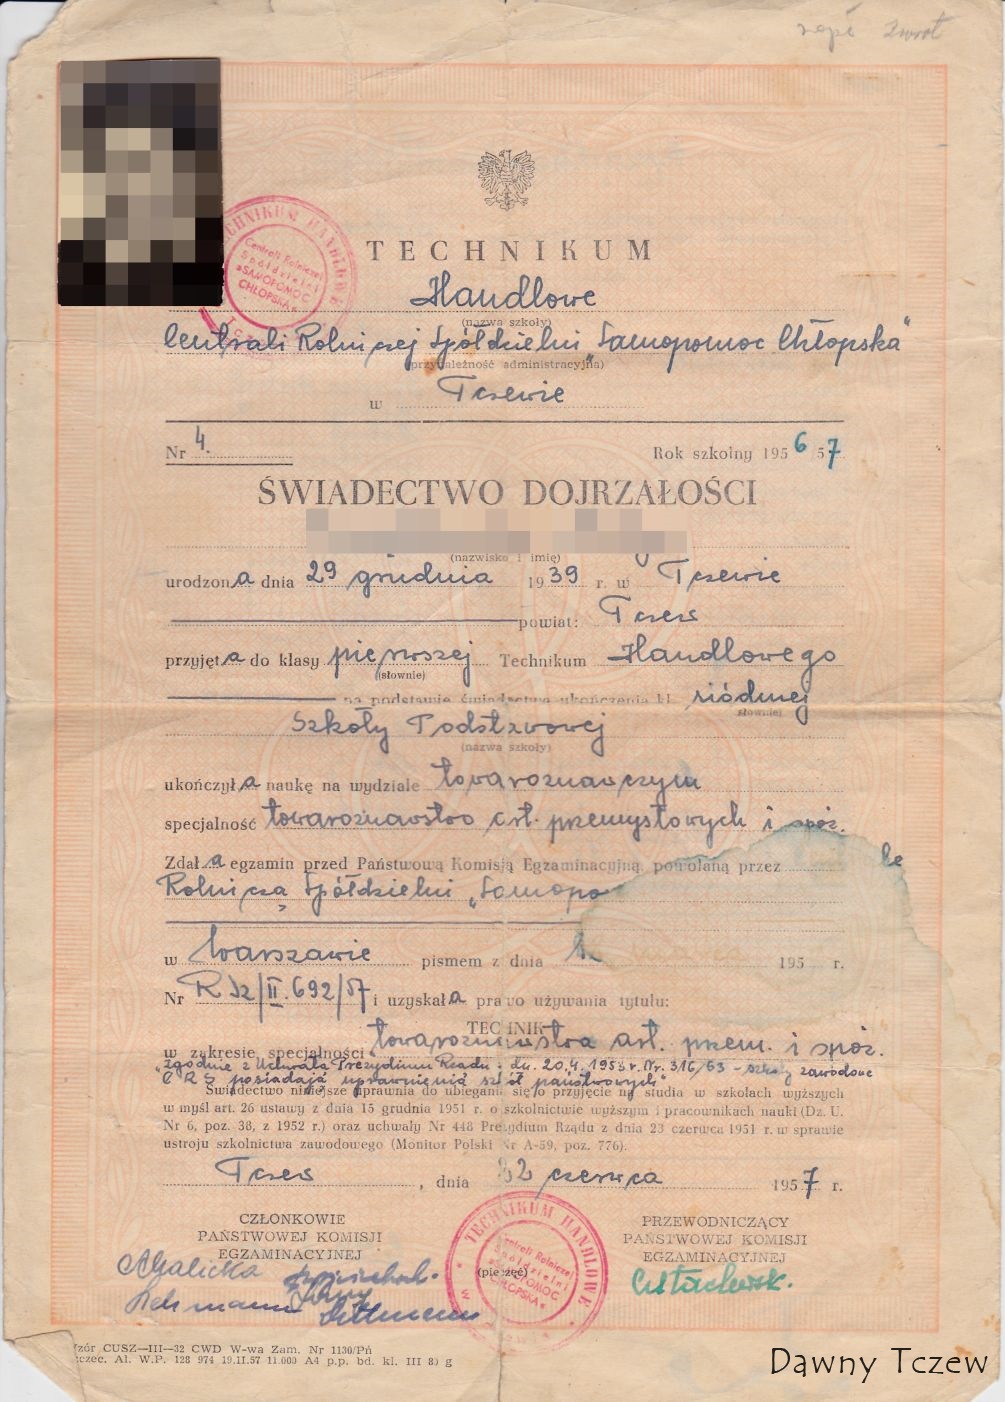 zwrot
TECHNIKUM
Handlowe
(nazwa szkoły)
Centrali Rolniczej Spółdzielni „Samopomoc Chłopska"
(przynależność administracyjna)
w Tczewie
Nr 4. Rok szkolny 1956/57
ŚWIADECTWO DOJRZAŁOŚCI
(nazwisko i imię)
urodzona dnia 29 grudnia 1939 r. w Tczewie
powiat: Tczew
przyjęta do klasy pierwszej Technikum Handlowego
(słownie)
na podstawie świadectwa ukończenia kl. siódmej
słownie)
Szkoły Podstawowej
(nazwa szkoły)
ukończyła naukę na wydziale towaroznawczym
specjalność towaroznawstwo art. przemysłowych i spoż.
Zdała egzamin przed Państwową Komisją Egzaminacyjną, powołaną przez le
Rolniczą Spółdzielni „Samopo
w Warszawie pismem z dnia 195 r.
Nr RSz/II.692/57 i uzyskała prawo używania tytułu:
TECHNIK
w zakresie specjalności towaroznawstwa art. przem. i spoż.
"zgodnie z Uchwałą Prezydium Rządu z dn. 20.4.1953 r. Nr. 316/53 - szkoły zawodowe
C R S posiadają uprawnienia szkół państwowych"
Świadectwo niniejsze uprawnia do ubiegania się o przyjęcie na studia w szkołach wyższych
w myśl art. 26 ustawy z dnia 15 grudnia 1951 r. o szkolnictwie wyższym i pracownikach nauki (Dz. U.
Nr 6, poz. 38, z 1952 r.) oraz uchwały Nr 448 Prezydium Rządu z dnia 23 czerwca 1951 r. w sprawie
ustroju szkolnictwa zawodowego (Monitor Polski Nr A-59, poz. 776).
Tczew, dnia 22 czerwca 1957 r.
CZŁONKOWIE
PAŃSTWOWEJ KOMISJI
EGZAMINACYJNEJ
PRZEWODNICZĄCY
PAŃSTWOWEJ KOMISJI
EGZAMINACYJNEJ
(pieczęć)
TECHNIKUM HANDLOWE
Centrali Rolniczej
Spółdzielni
»SAMOPOMOC
CHŁOPSKA«
TECHNIKUM HANDLOWE
Centrali Rolniczej
Spółdzielni
»SAMOPOMOC
CHŁOPSKA«
Wzór CUSZ—III—32 CWD W-wa Zam. Nr 1130/Pń
Szczec. Al. W.P. 128 974 19.II.57 11.000 A4 p.p. bd. kl. III 80 g
Dawny Tczew